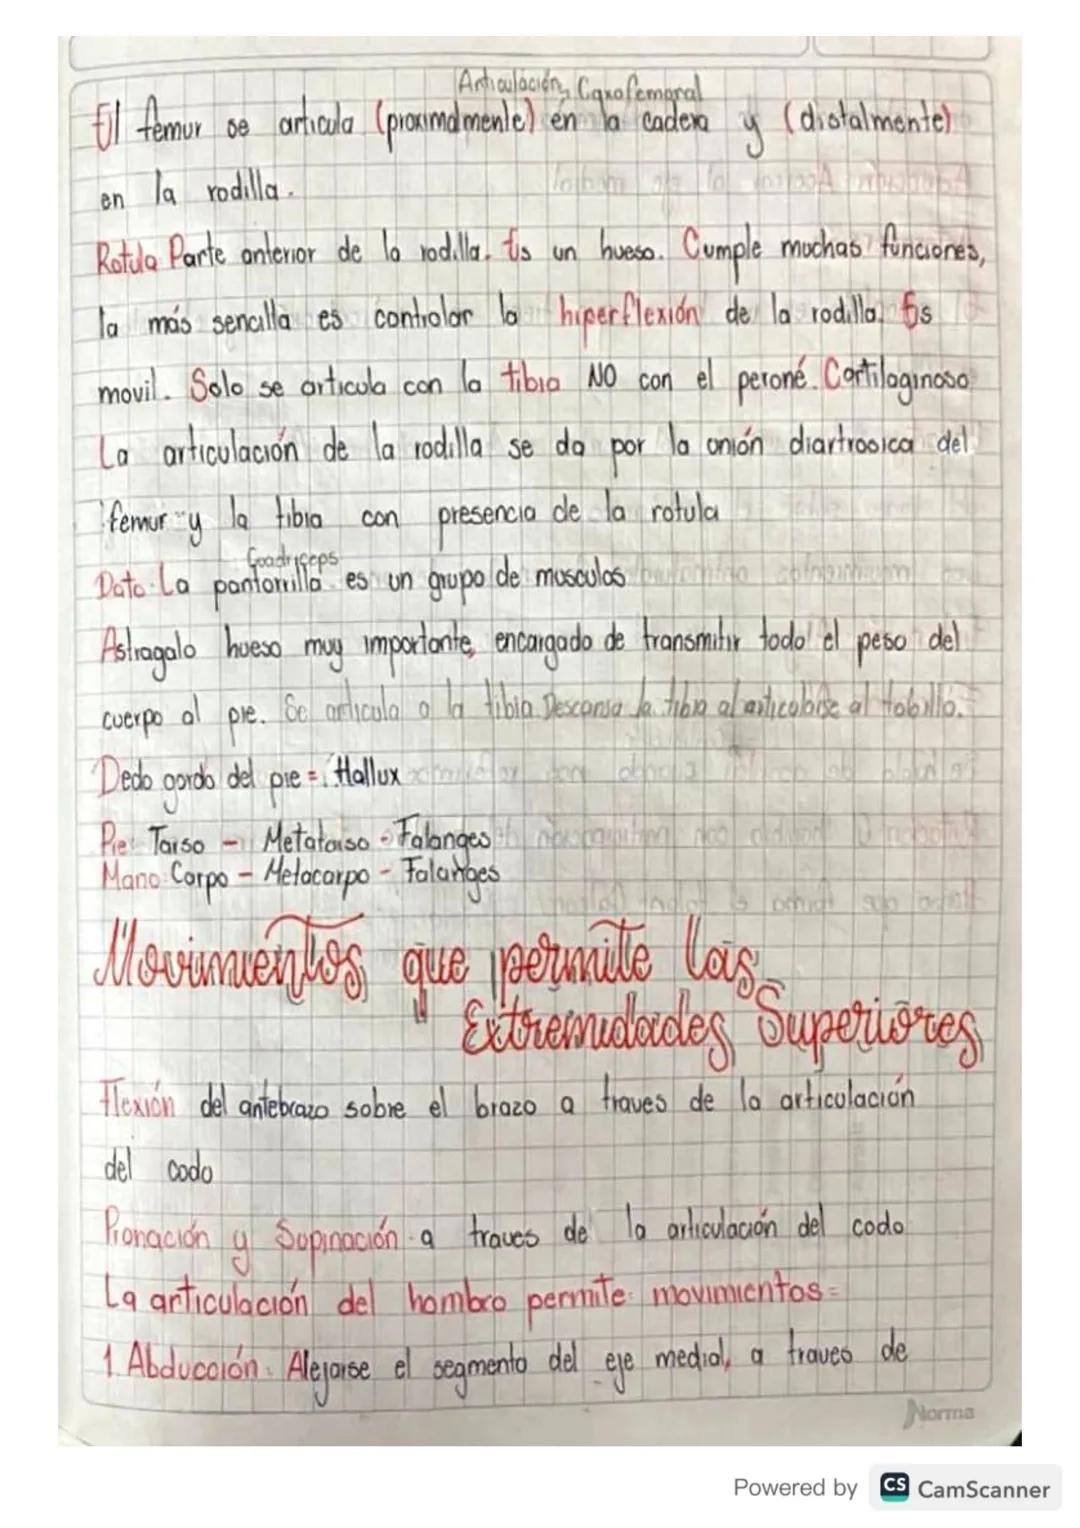 Articulación Coxofemoral
El femur se articula (proximalmente) en la cadera y (distalmente)
en la rodilla.
Rotula Parte anterior de la rodilla. Es un hueso. Cumple muchas funciones,
la más sencilla es controlar la hiperflexión de la rodilla. Es
movil. Solo se articula con la tibia NO con el peroné. Cartilaginoso
La articulación de la rodilla se da por la unión diartrosica del
femur y la tibia con presencia de la rotula
Cuadriceps
Dato: La pantorrilla es un grupo de musculos
Astragalo hueso muy importante, encargado de transmitir todo el peso del
cuerpo al pie. Se articula a la tibia Descansa la tibia al articularse al tobillo.
Dedo gordo del pie = Hallux
Pie: Tarso - Metatarso - Falanges
Mano: Carpo - Metacarpo - Falanges
Movimientos que permite las
Extremidades Superiores
Flexión del antebrazo sobre el brazo a traves de la articulación
del codo
Pronación y Supinación a traves de la articulación del codo
La articulación del hombro permite movimientos =
1. Abducción: Alejarse el segmento del eje medial, a traves de
Norma
Powered by CS CamScanner